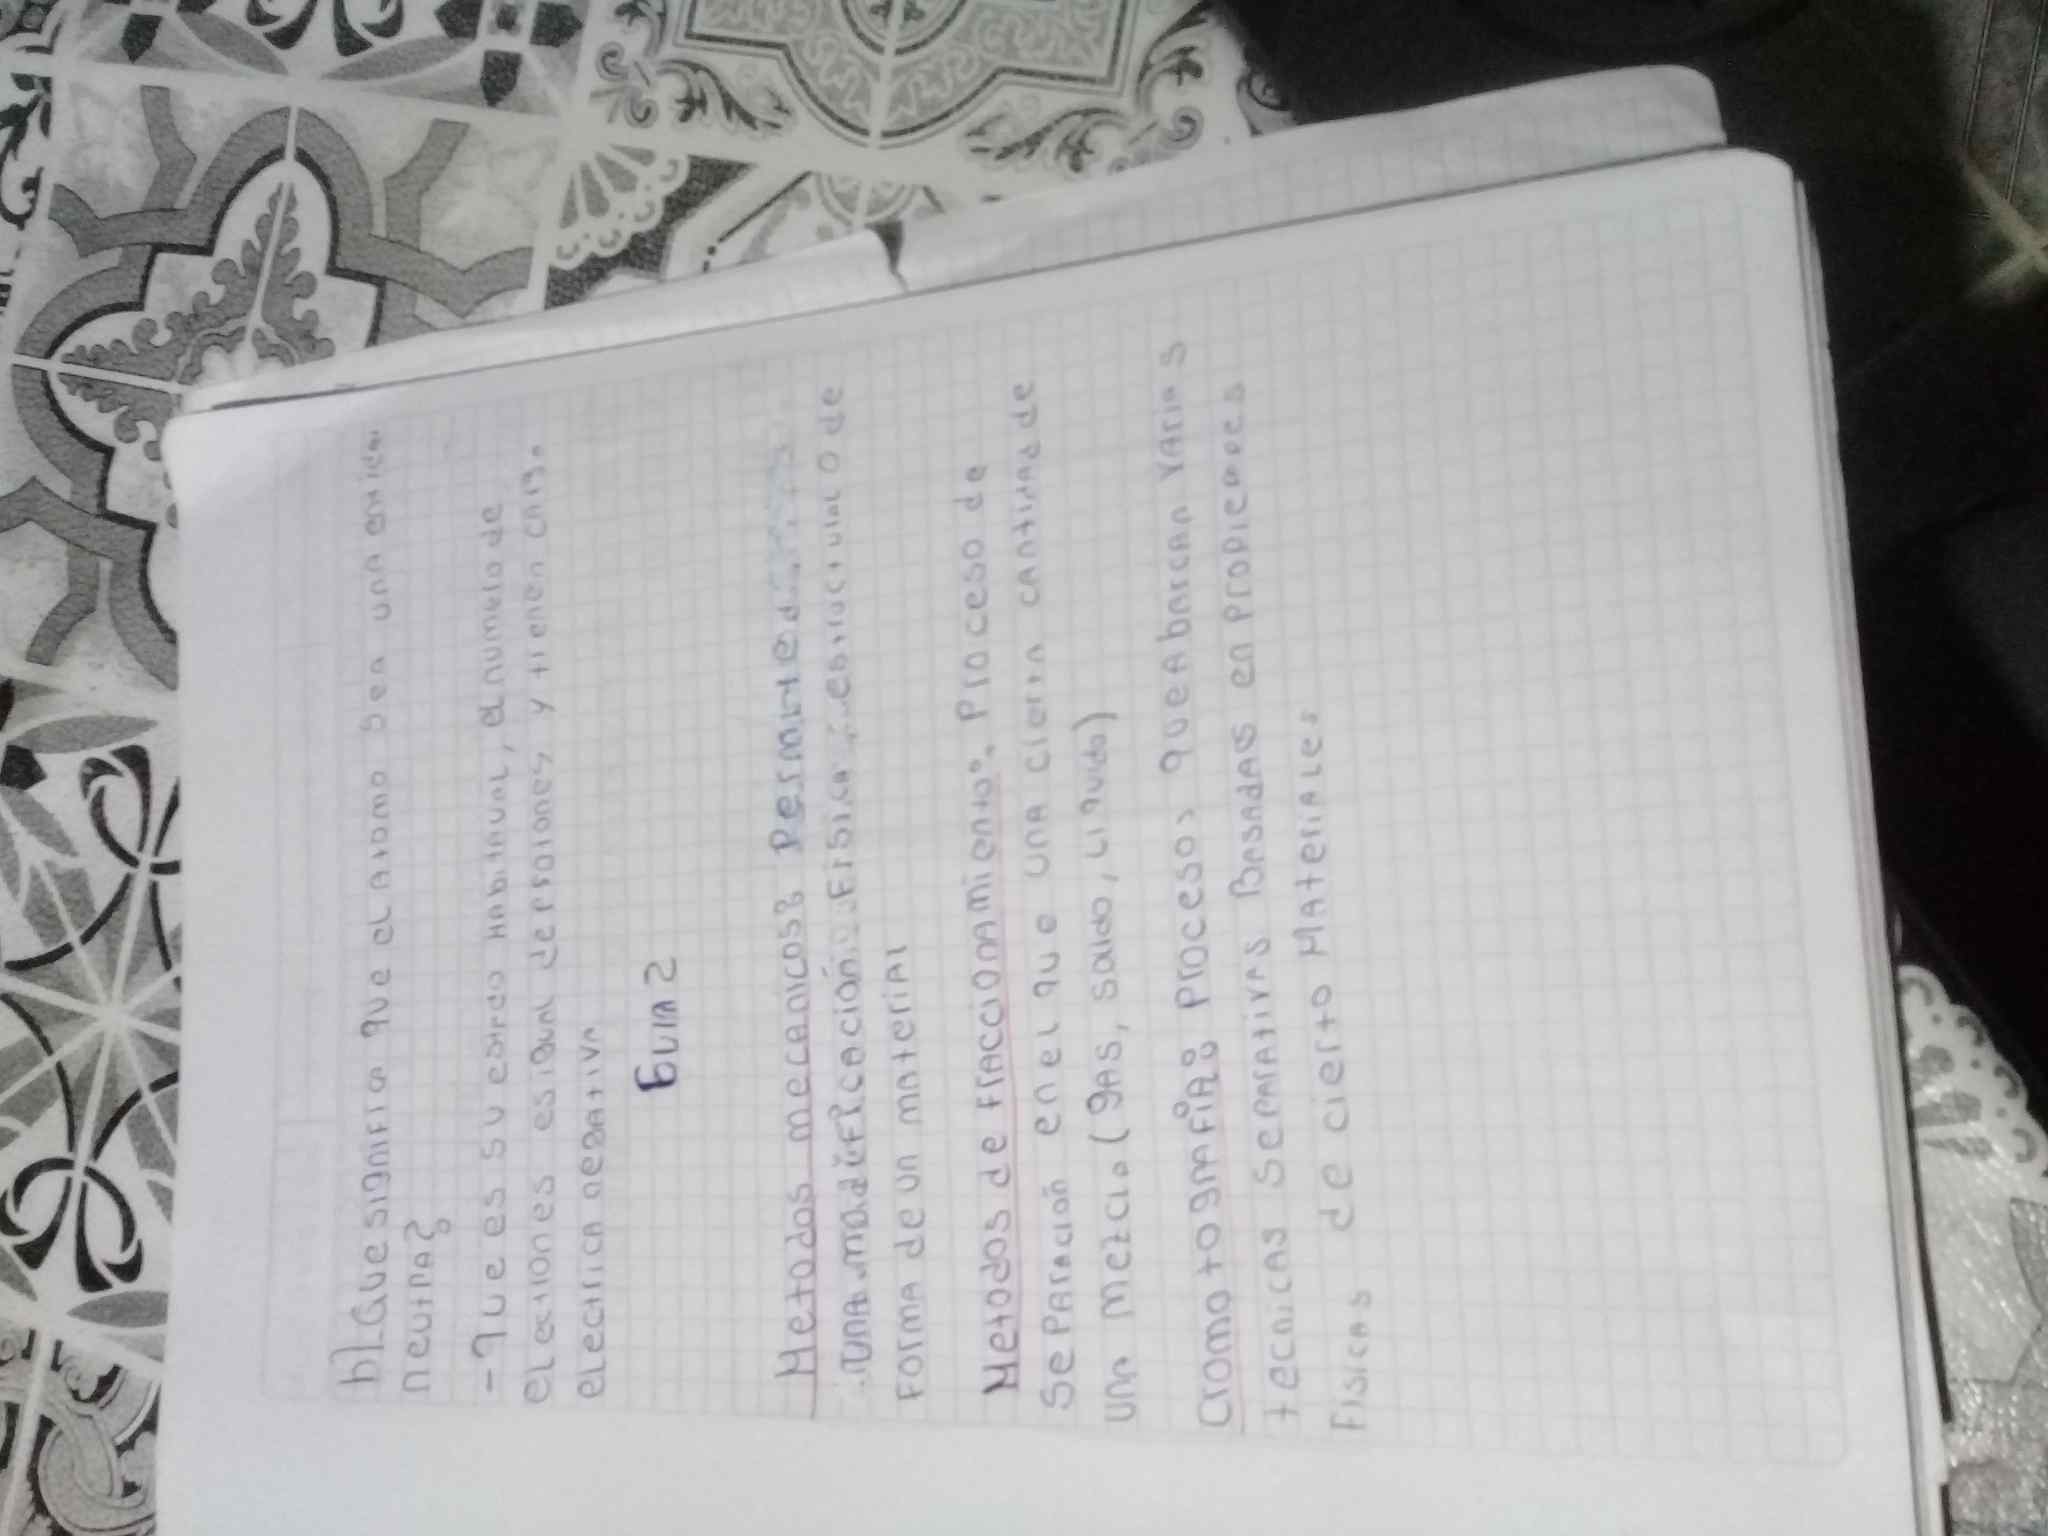 b) Que significa que el atomo sea una
neutra?
- que es su estado habitual, el numero de
electrones es igual de protones y tienen carga
electrica negativa
Guia 2
Metodos mecanicos: Permite
una modificación fisica, estructural o de
forma de un material
Metodos de fraccionamiento: Proceso de
separación en el que una cierta cantidad de
una mezcla (gas, solido, liquido)
Cromotografia: Procesos que abarcan varias
tecnicas separativas Basadas en propiedades
fisicas de cierto Materiales